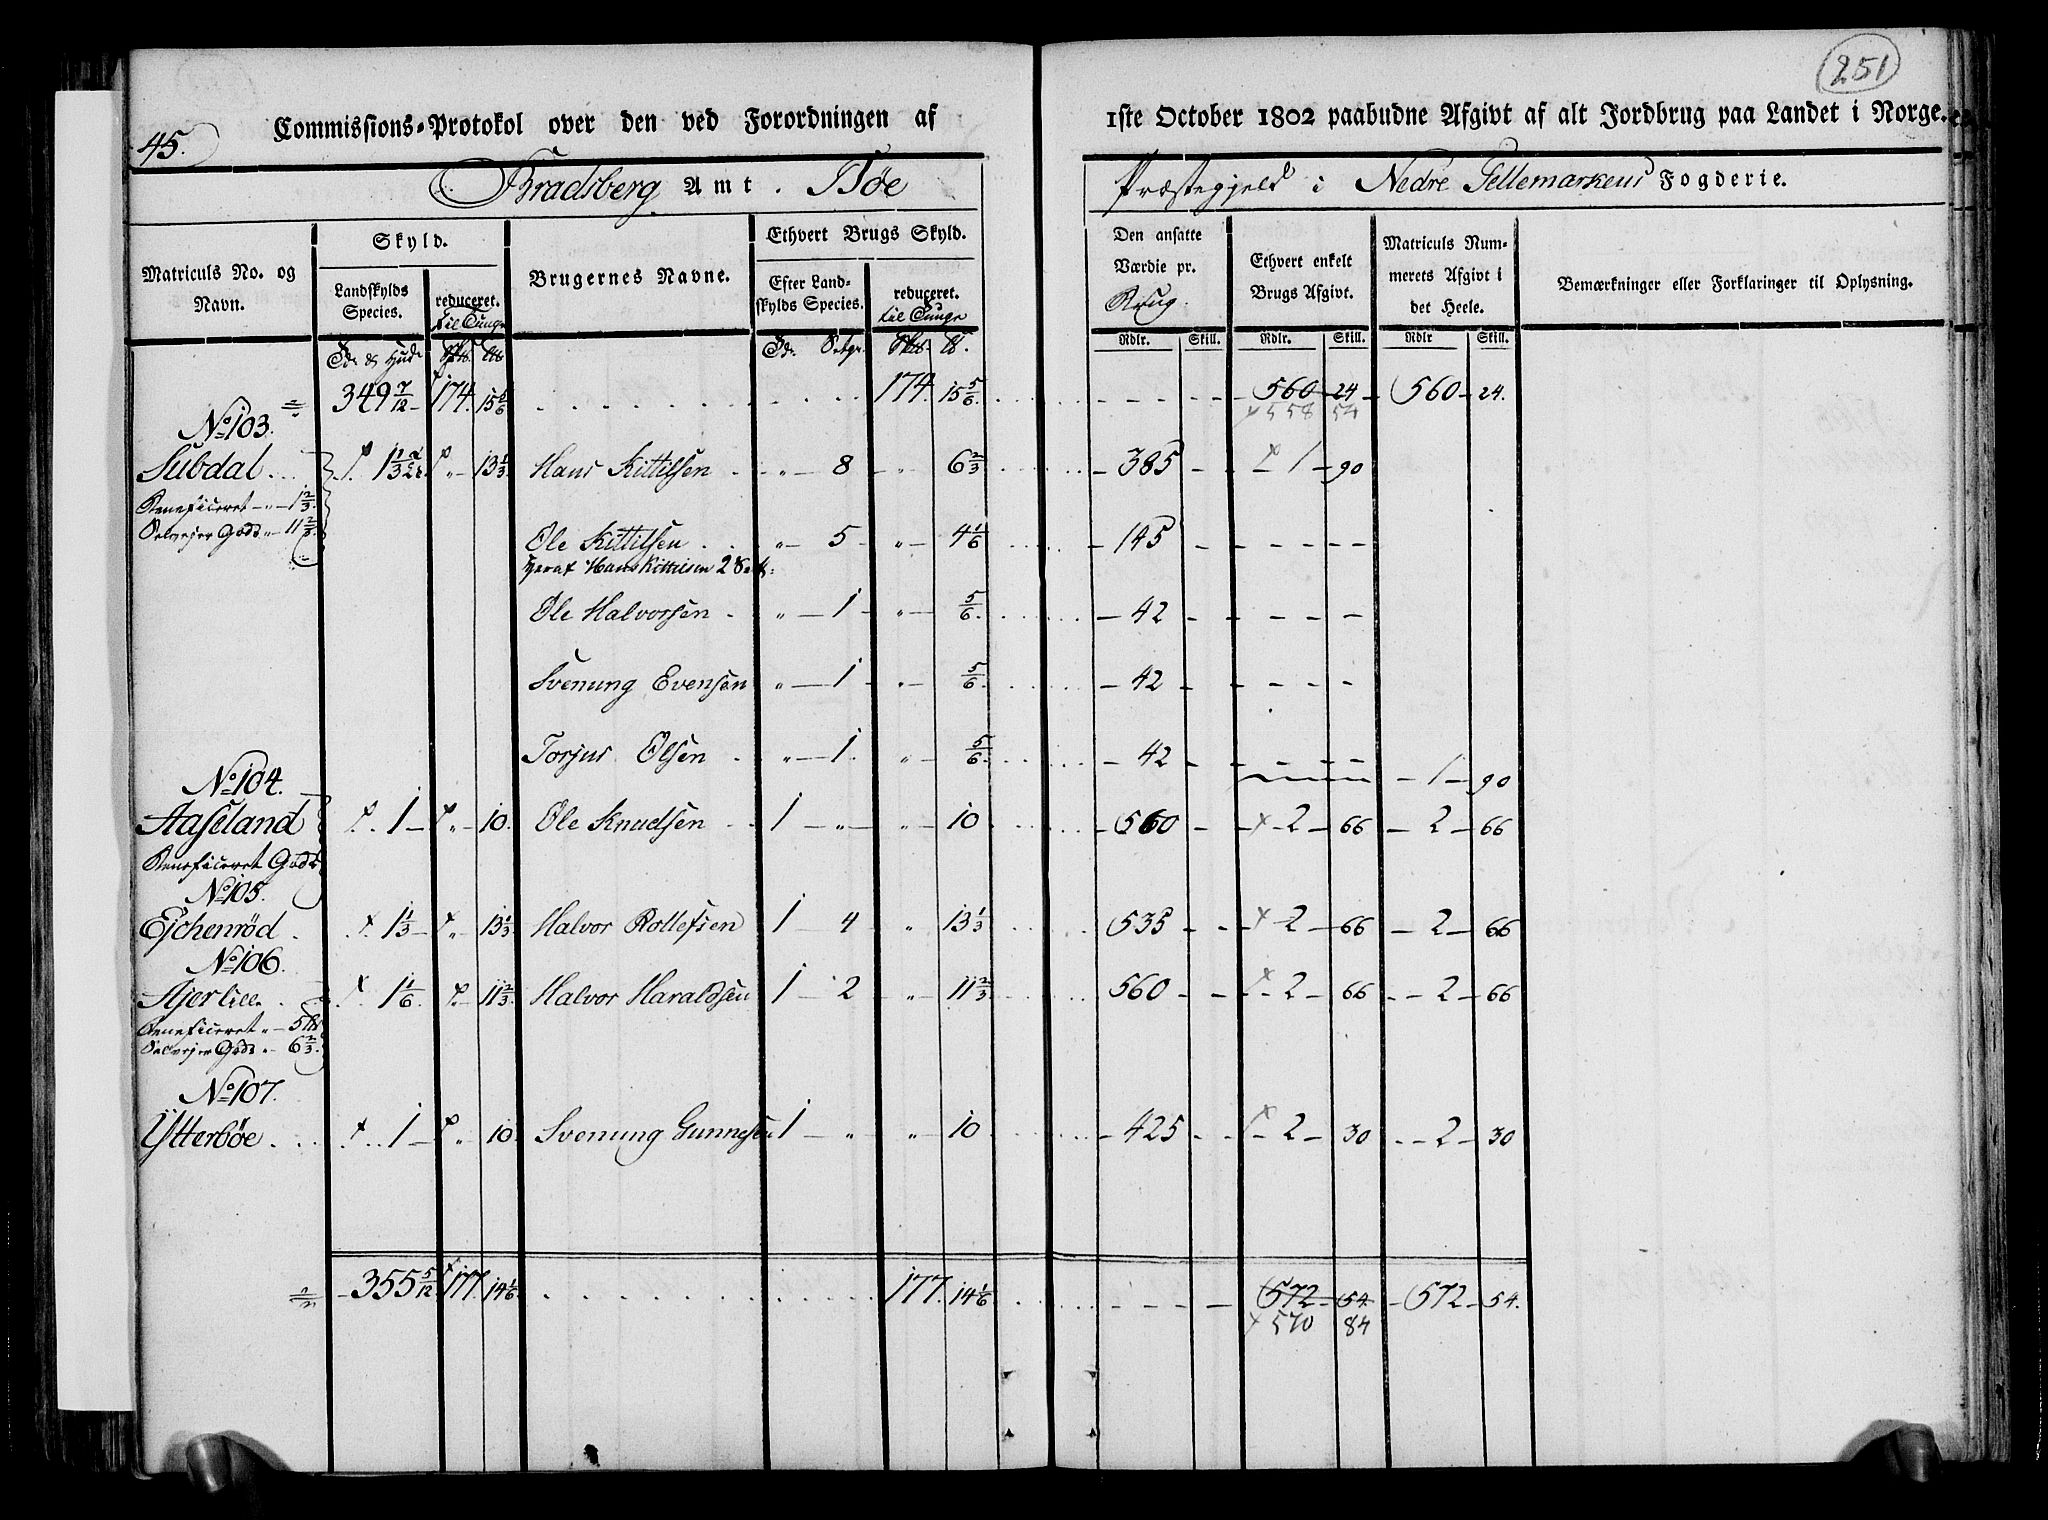 251
45.
Commissions-Protokol over den ved Forordningen af 1ste October 1802 paabudne Afgivt af alt Jordbrug paa Landet i Norge.
Bradsberg Amt. Bøe Præstegjeld i Nedre Tellemarkens Fogderie.
Matriculs No. og Navn.
Skyld.
Landskylds Species.
reduceret. til Tunge
Brugernes Navne.
Ethvert Brugs Skyld.
Efter Landskylds Species.
reduceret. til Tunge
Den ansatte Værdie pr. Brug.
Ethvert enkelt Brugs Afgivt.
Matriculs Nummerets Afgivt i det Heele.
Bemærkninger eller Forklaringer til Oplysning.
Rdlr. Skill. Rdlr. Skill. Rdlr Skill.
349 7/12 174. 15 5/6 174. 15 5/6 560 24 560 24.
558 54
No 103.
Subdal 1 1/3 " 13 1/3 Hans Kittilsen " 8 " 6 2/3 385 1 90
Beneficeret " 1 2/3
Selveier Gods " 11 2/3
Ole Kittilsen " 5 " 4 1/6 145
heraf Hans Kittilsen 2
Ole Halvorsen " 1 " 5/6 42
Svenung Evensen " 1 " 5/6 42
Torjus Olsen " 1 " 5/6 42
1 90
No 104.
Aaseland 1 " 10. Ole Knudsen 1 " " 10 560 2 66 2 66
Beneficeret Gods
No 105.
Ejchenrød 1 1/3 " 13 1/3 Halvor Rollefsen 1 4 " 13 1/3 535 2 66 2 66
No 106.
Ajerlille 1 1/6 11 2/3 Halvor Haraldsen 1 2 " 11 2/3 560 2 66 2 66
Beneficeret " 5
Selveier Gods " 6 2/3
No 107.
Ytterbøe 1 " 10 Svenung Gunnesen 1 " " 10 425 2 30 2 30
355 5/12 177. 14 1/6 177. 14 1/6 572 54 572 54.
570 84